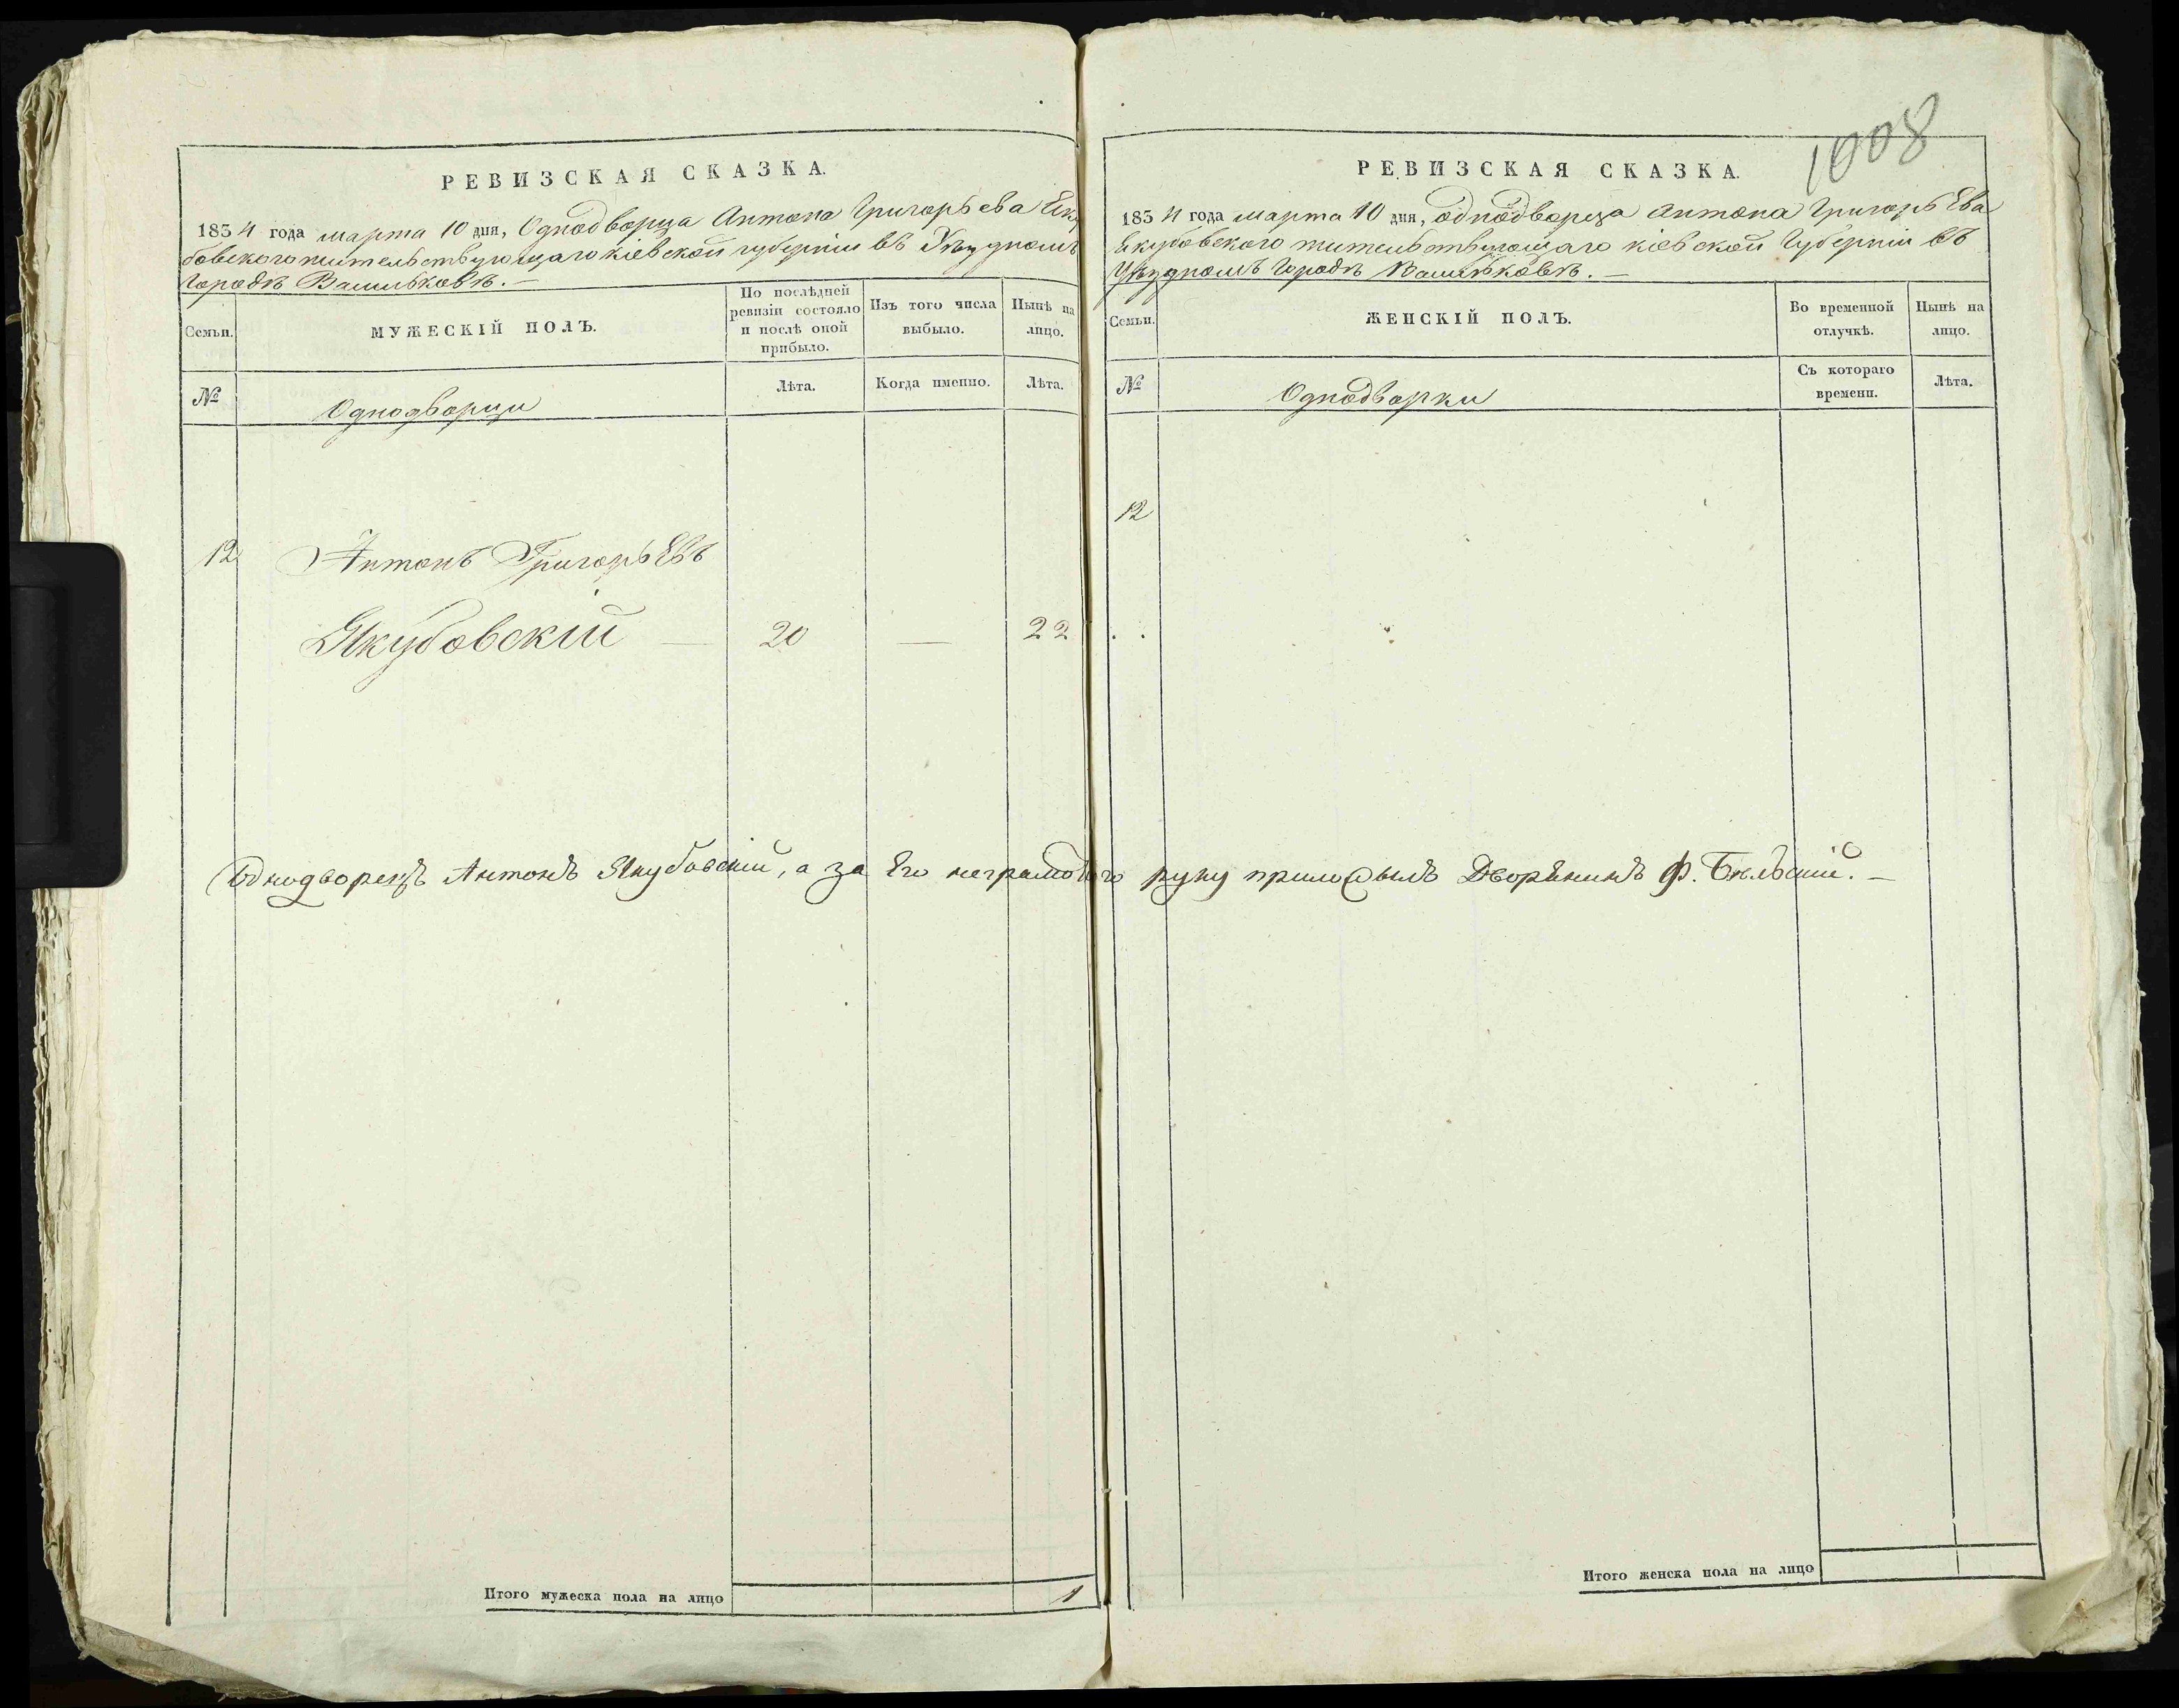 РЕВИЗСКАЯ СКАЗКА.
1834 года марта 10 дня, Однодворца Антона Григорьева Яку
бовского жительствующаго кіевской губерніи въ Уѣздномъ
городѣ Васильковѣ. —
Семьи.
МУЖЕСКІЙ ПОЛЪ.
По послѣдней ревизіи состояло и послѣ оной прибыло.
Изъ того числа выбыло.
Нынѣ на лицо.
№
Однодворци
Лѣта.
Когда именно.
Лѣта.
12 Антонъ Григорьевъ
Якубовскій — 20 — 22
Однодворецъ Антонъ Якубовскій, а за Его неграмотного руку приложылъ Дворянинъ Ф. Бѣльский. —
Итого мужеска пола на лицо 1
1008
РЕВИЗСКАЯ СКАЗКА.
1834 года марта 10 дня, однодворца Антона Григорьева
Якубовского жительствующаго кіевской Губерніи въ
Уѣздномъ Городѣ Васильковѣ. —
Семьи.
ЖЕНСКІЙ ПОЛЪ.
Во временной отлучкѣ.
Нынѣ на лицо.
№
Однодворки
Съ котораго времени.
Лѣта.
12
Итого женска пола на лицо